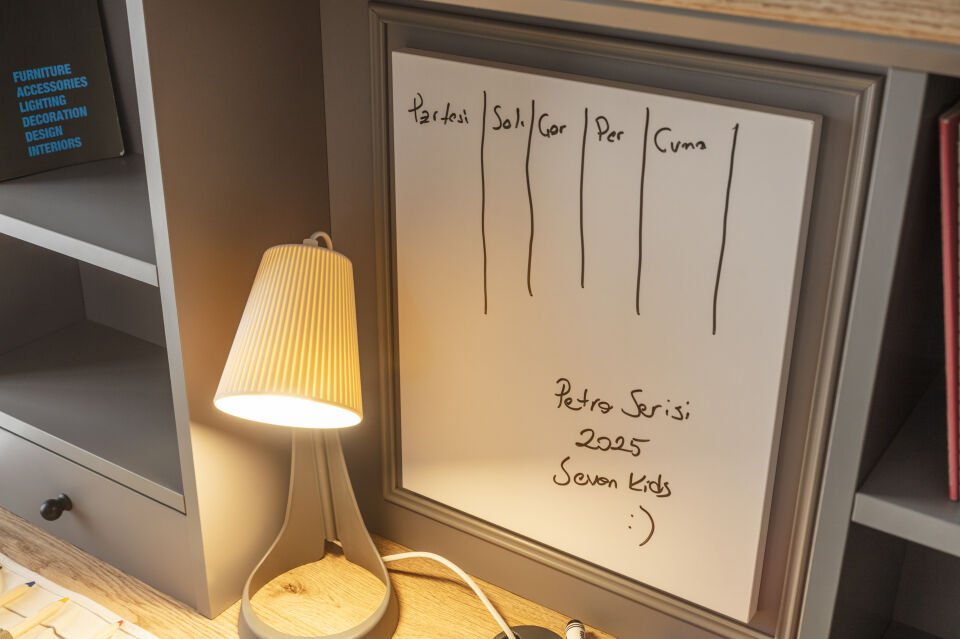 FURNITURE
ACCESSORIES
LIGHTING
DECORATION
DESIGN
INTERIORS
Pzrtesi Salı Çar Per Cuma
Petra Serisi
2025
Seven Kids
:)